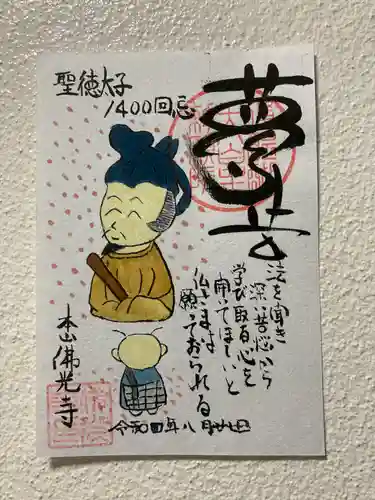 聖徳太子
1400回忌
法を聞き
深い苦悩から
学び取る心を
開いてほしいと
仏さまは
願っておられる
本山佛光寺
令和四年八月廿九日